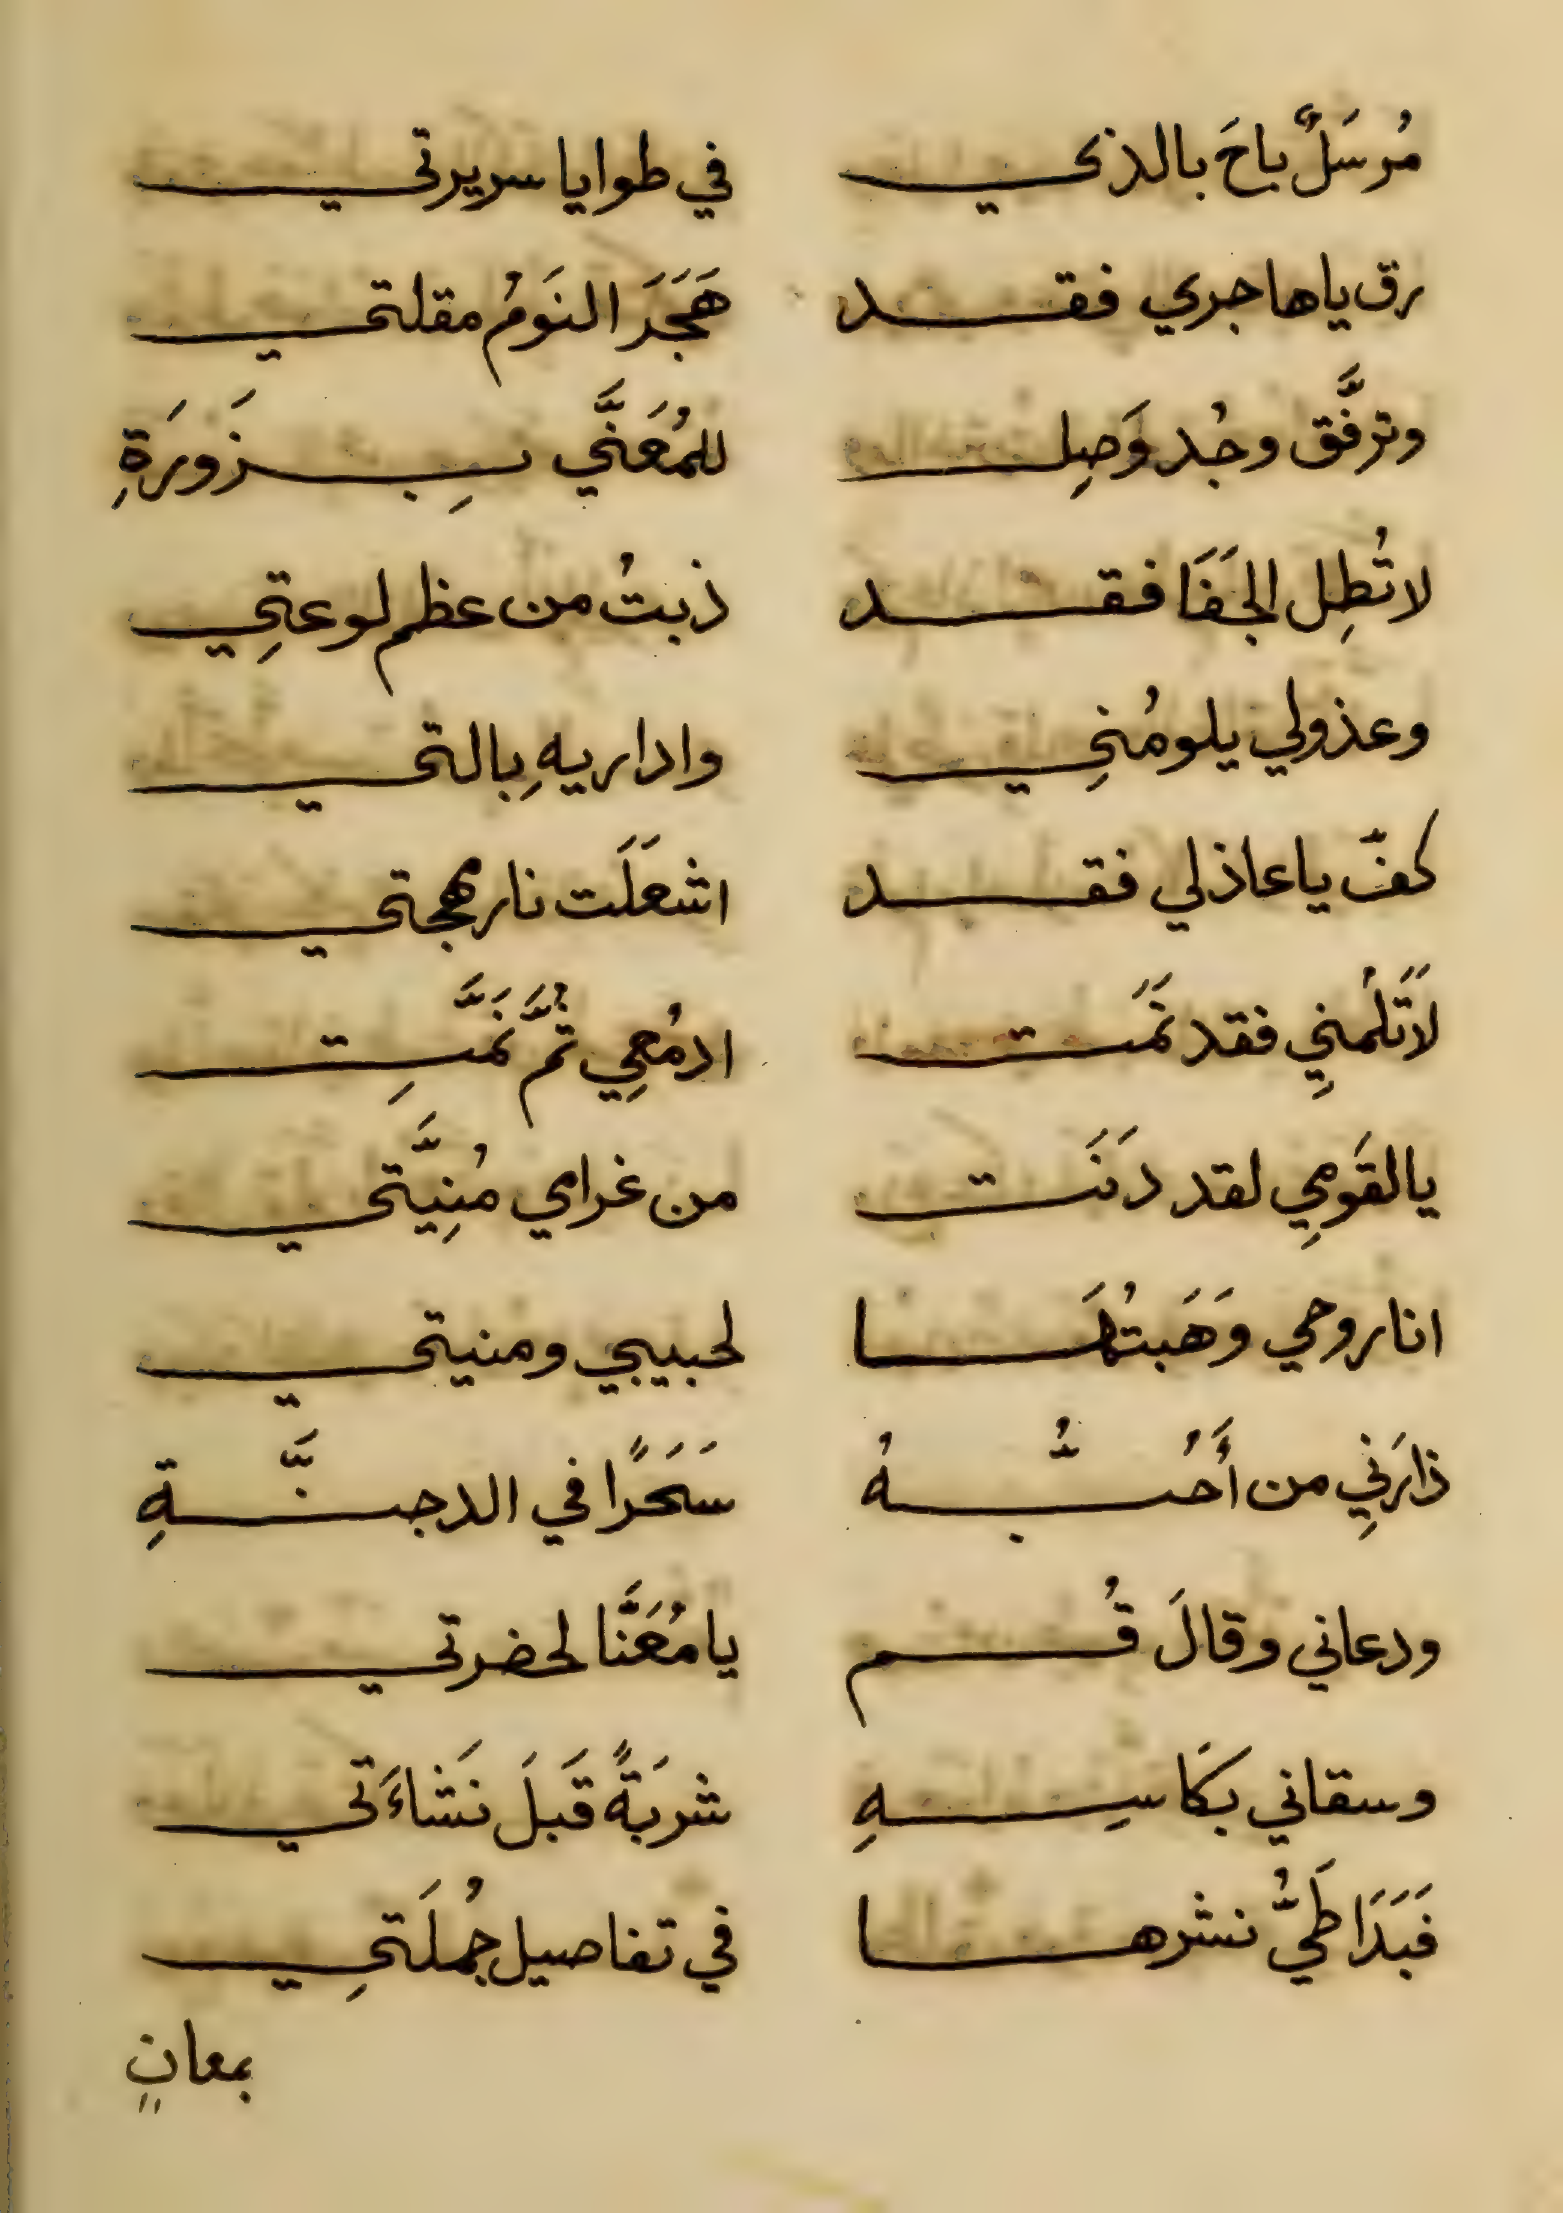 مُرسَلٌ باحَ بالذي في طوايا سريرتي
رق ياهاجري فقد هَجَرَ النَومُ مقلتي
وترفَّق وجُد وَصِل للمُعَنَّي بِزَورَةِ
لا تُطِل الجَفَا فقد ذبتُ من عظم لوعتِي
وعذولي يلومُنِي واداريهِ بالتي
كفّ ياعاذلي فقد اشعَلَت نار مهجتي
لَا تَلُمنِي فقد نَمَت ادمُعِي ثُمَّ نَمَّتِ
يالقَومِي لقد دَنَت من غرامي مُنِيَّتي
انا روحي وَهَبتُهَا لحبيبي ومنيتي
زارَنِي من أُحُبُّهُ سَحَرًا في الدجنَّةِ
ودعاني وقالَ قُم يا مُعَنَّا لحضرتي
وسقاني بكَاسِهِ شربَةً قَبلَ نَشاءَتي
فَبَدَا طَيُّ نشرها في تفاصيل جُملَتِي
بمعانٍ